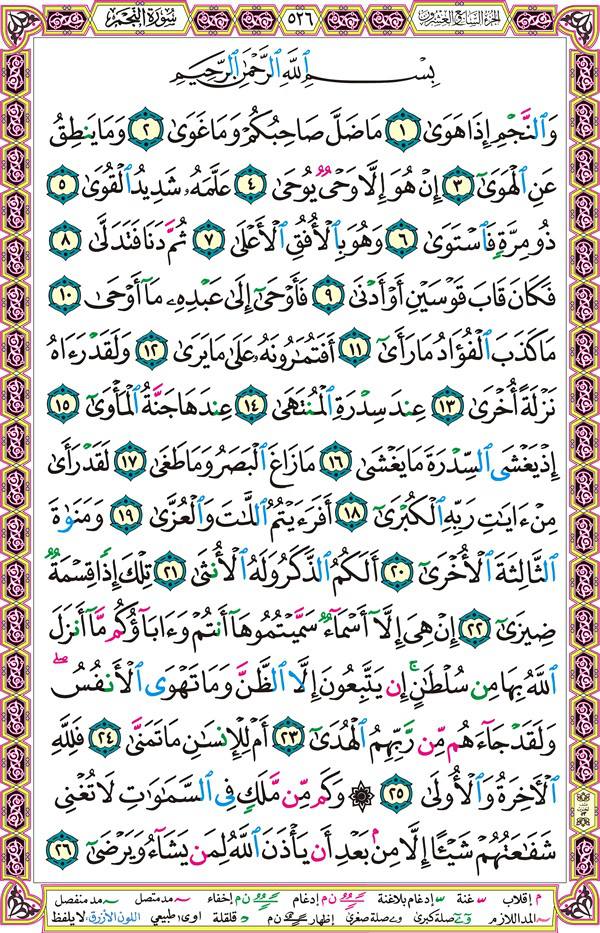 الجزء السابع والعشرون ٥٢٦ سورة النجم
بِسْمِ ٱللَّهِ ٱلرَّحْمَٰنِ ٱلرَّحِيمِ
وَٱلنَّجْمِ إِذَا هَوَىٰ ١ مَا ضَلَّ صَاحِبُكُمْ وَمَا غَوَىٰ ٢ وَمَا يَنطِقُ
عَنِ ٱلْهَوَىٰٓ ٣ إِنْ هُوَ إِلَّا وَحْىٌ يُوحَىٰ ٤ عَلَّمَهُۥ شَدِيدُ ٱلْقُوَىٰ ٥
ذُو مِرَّةٍ فَٱسْتَوَىٰ ٦ وَهُوَ بِٱلْأُفُقِ ٱلْأَعْلَىٰ ٧ ثُمَّ دَنَا فَتَدَلَّىٰ ٨
فَكَانَ قَابَ قَوْسَيْنِ أَوْ أَدْنَىٰ ٩ فَأَوْحَىٰٓ إِلَىٰ عَبْدِهِۦ مَآ أَوْحَىٰ ١٠
مَا كَذَبَ ٱلْفُؤَادُ مَا رَأَىٰٓ ١١ أَفَتُمَٰرُونَهُۥ عَلَىٰ مَا يَرَىٰ ١٢ وَلَقَدْ رَءَاهُ
نَزْلَةً أُخْرَىٰ ١٣ عِندَ سِدْرَةِ ٱلْمُنتَهَىٰ ١٤ عِندَهَا جَنَّةُ ٱلْمَأْوَىٰٓ ١٥
إِذْ يَغْشَى ٱلسِّدْرَةَ مَا يَغْشَىٰ ١٦ مَا زَاغَ ٱلْبَصَرُ وَمَا طَغَىٰ ١٧ لَقَدْ رَأَىٰ
مِنْ ءَايَٰتِ رَبِّهِ ٱلْكُبْرَىٰٓ ١٨ أَفَرَءَيْتُمُ ٱللَّٰتَ وَٱلْعُزَّىٰ ١٩ وَمَنَوٰةَ
ٱلثَّالِثَةَ ٱلْأُخْرَىٰٓ ٢٠ أَلَكُمُ ٱلذَّكَرُ وَلَهُ ٱلْأُنثَىٰ ٢١ تِلْكَ إِذًا قِسْمَةٌ
ضِيزَىٰٓ ٢٢ إِنْ هِىَ إِلَّآ أَسْمَآءٌ سَمَّيْتُمُوهَآ أَنتُمْ وَءَابَآؤُكُم مَّآ أَنزَلَ
ٱللَّهُ بِهَا مِن سُلْطَٰنٍ ۚ إِن يَتَّبِعُونَ إِلَّا ٱلظَّنَّ وَمَا تَهْوَى ٱلْأَنفُسُ ۖ
وَلَقَدْ جَآءَهُم مِّن رَّبِّهِمُ ٱلْهُدَىٰٓ ٢٣ أَمْ لِلْإِنسَٰنِ مَا تَمَنَّىٰ ٢٤ فَلِلَّهِ
ٱلْءَاخِرَةُ وَٱلْأُولَىٰ ٢٥ ۞ وَكَم مِّن مَّلَكٍ فِى ٱلسَّمَٰوَٰتِ لَا تُغْنِى
شَفَٰعَتُهُمْ شَيْـًٔا إِلَّا مِنۢ بَعْدِ أَن يَأْذَنَ ٱللَّهُ لِمَن يَشَآءُ وَيَرْضَىٰٓ ٢٦
م إقلاب س غنة إدغام بلاغنة ن م إدغام ن م إخفاء مد متصل مد منفصل
المد اللازم صلة كبرى صلة صغرى إظهار ن م قلقلة اوى طبيعي اللون الأزرق لا يلفظ